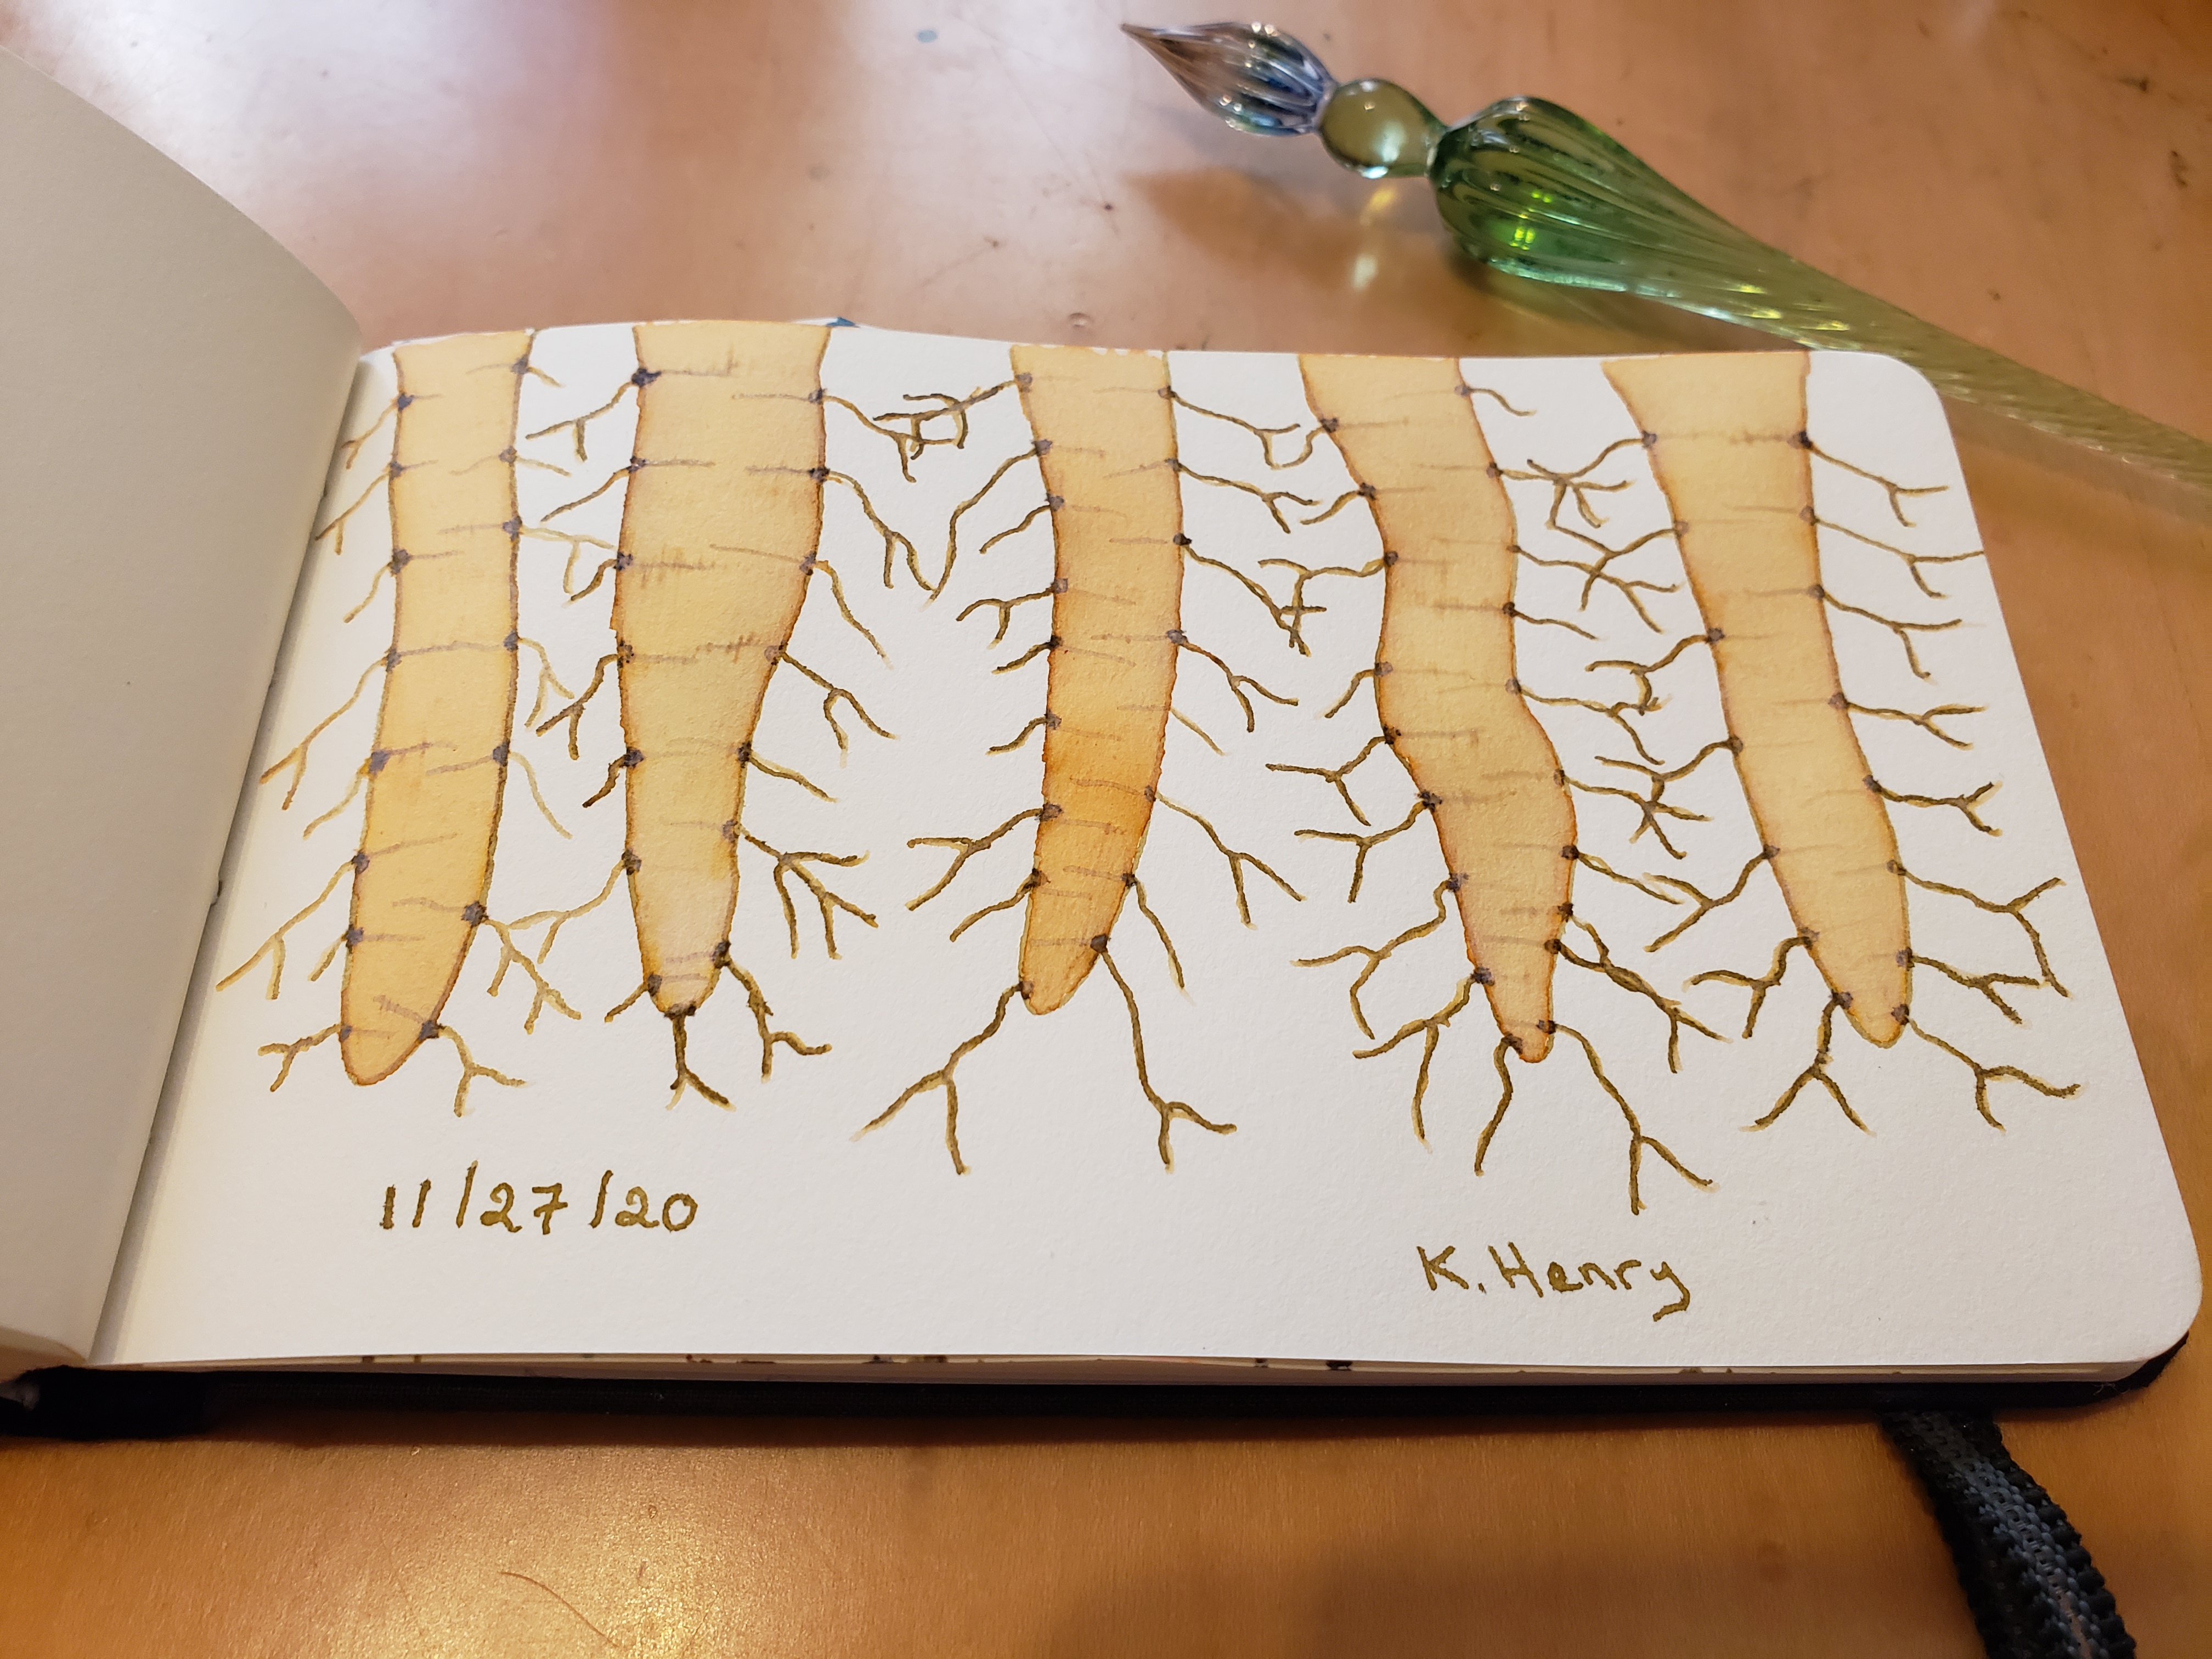 11/27/20
K. Henry